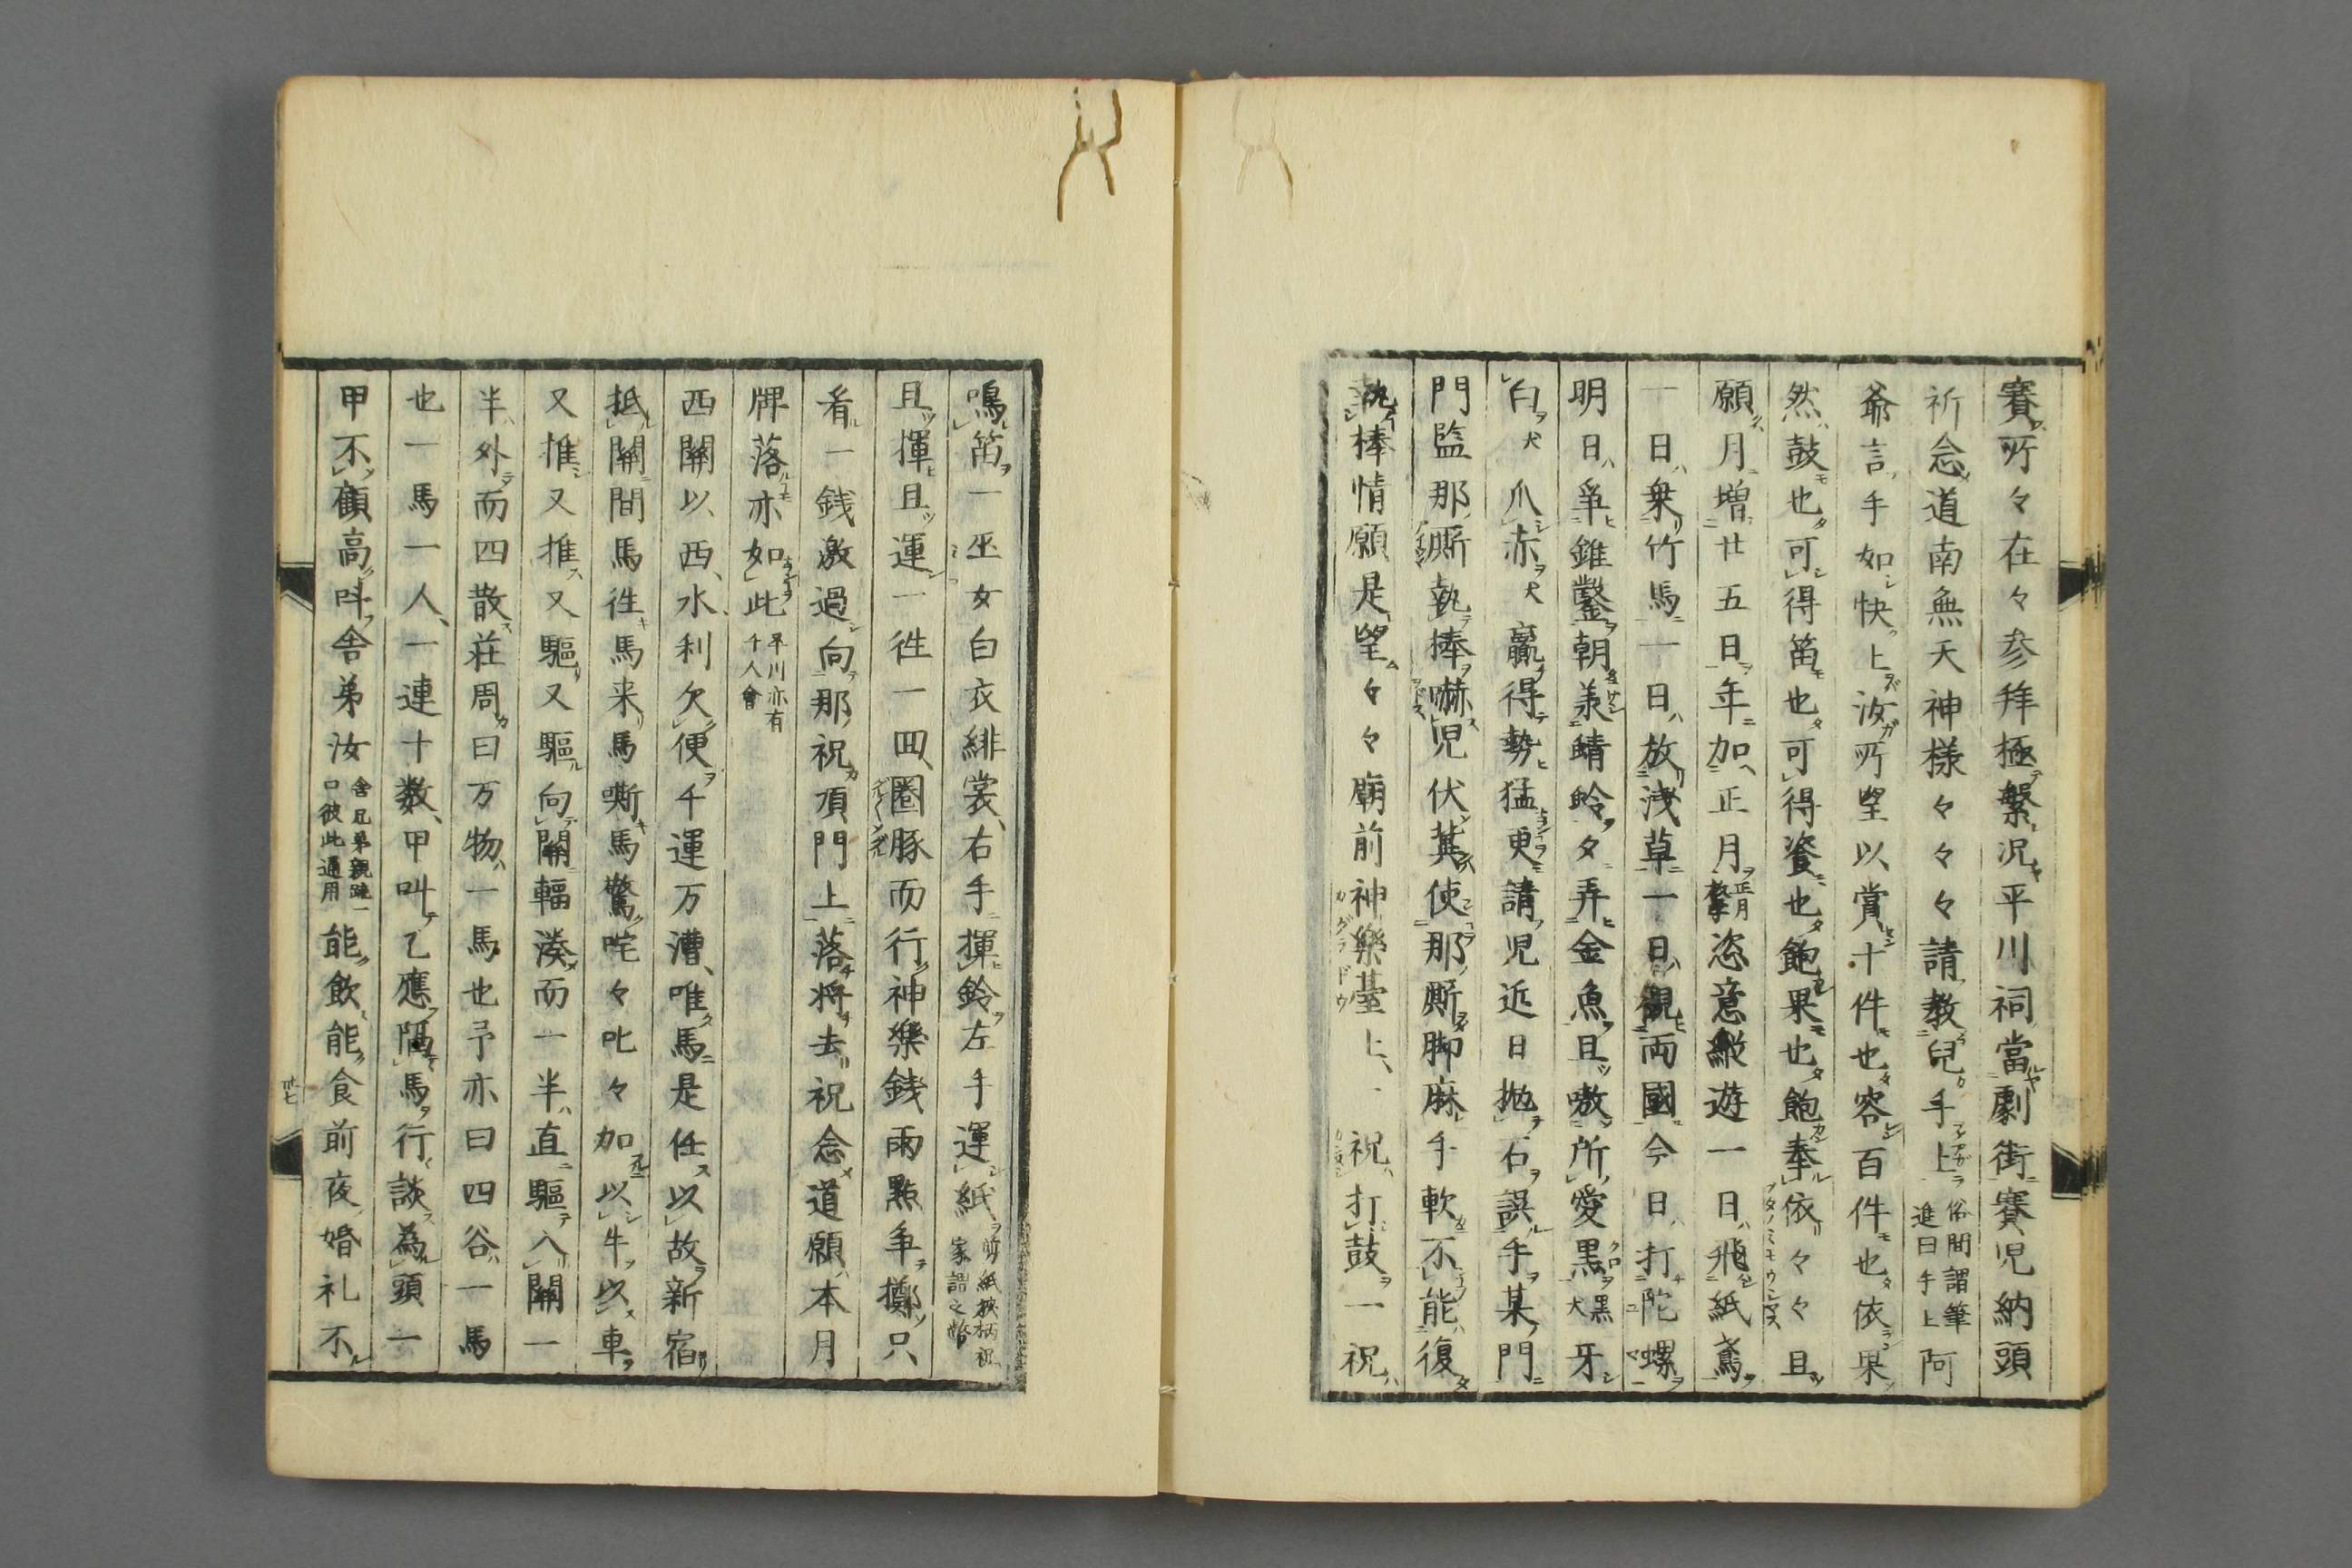 賽所々在々参拜極繁況平川祠當劇街賽児納頭
祈念道南無天神様々々々請教兒手上俗間謂筆進曰手上阿
爺言手如快上汝所望以賞十件也容百件也依果
然鼓也可得笛也可得瓷也飽果也飽奉依々々且
願月増廿五日年加正月正月恣意縱遊一日飛紙鳶
一日乗竹馬一日放浅草一日觀両國今日打陀螺
明日爭錐鑿朝羕蜻蛉夕弄金魚且嗷所愛黒黒犬牙
白犬爪赤犬贏得勢猛更請児近日拋石誤手某門
門監那厮執棒嚇児伏冀使那厮脚麻手軟不能復
執棒情願是望々々廟前神樂臺上一祝打鼓一祝
鳴笛一巫女白衣緋裳右手揮鈴左手運紙剪紙挾柄祝家謂之幣
且揮且運一徃一囬圈豚而行神樂銭雨點争擲只
看一銭激過向那祝頂門上落将去祝念道願本月
牌落亦如此平川亦有千人會
西關以西水利欠便千運万漕唯馬是任以故新宿
抵關間馬徃馬来馬嘶馬驚咤々叱々加以牛以車
又推又推又驅又驅向關輻湊而一半直驅入關一
半外而四散荘周曰万物一馬也予亦曰四谷一馬
也一馬一人一連十数甲叫乙應隔馬行談為頭一
甲不顧高呌舎弟汝舎兄弟親疎一口彼此通用能飲能食前夜婚礼不
廿七